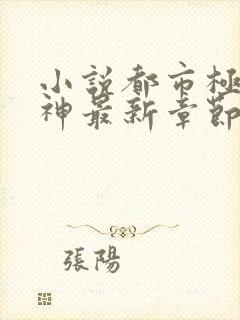 小說都市極
神最新章節
張陽